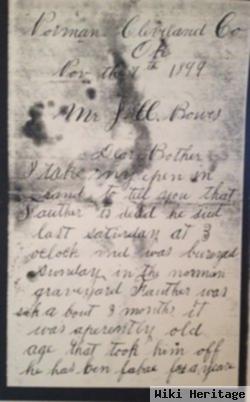 Norman Cleveland Co
Ok
Nov the 7th 1899
Mr J. W. Bowes
Dear Bother
I take my pen in
hand to till you that
Fauther is dead he died
last saturday at 3
oclock and was buryed
sunday in the norman
graveyard Fauther was
sick a bout 3 months it
was aperently old
age that took him off
he has ben for a yeare
Wiki Heritage